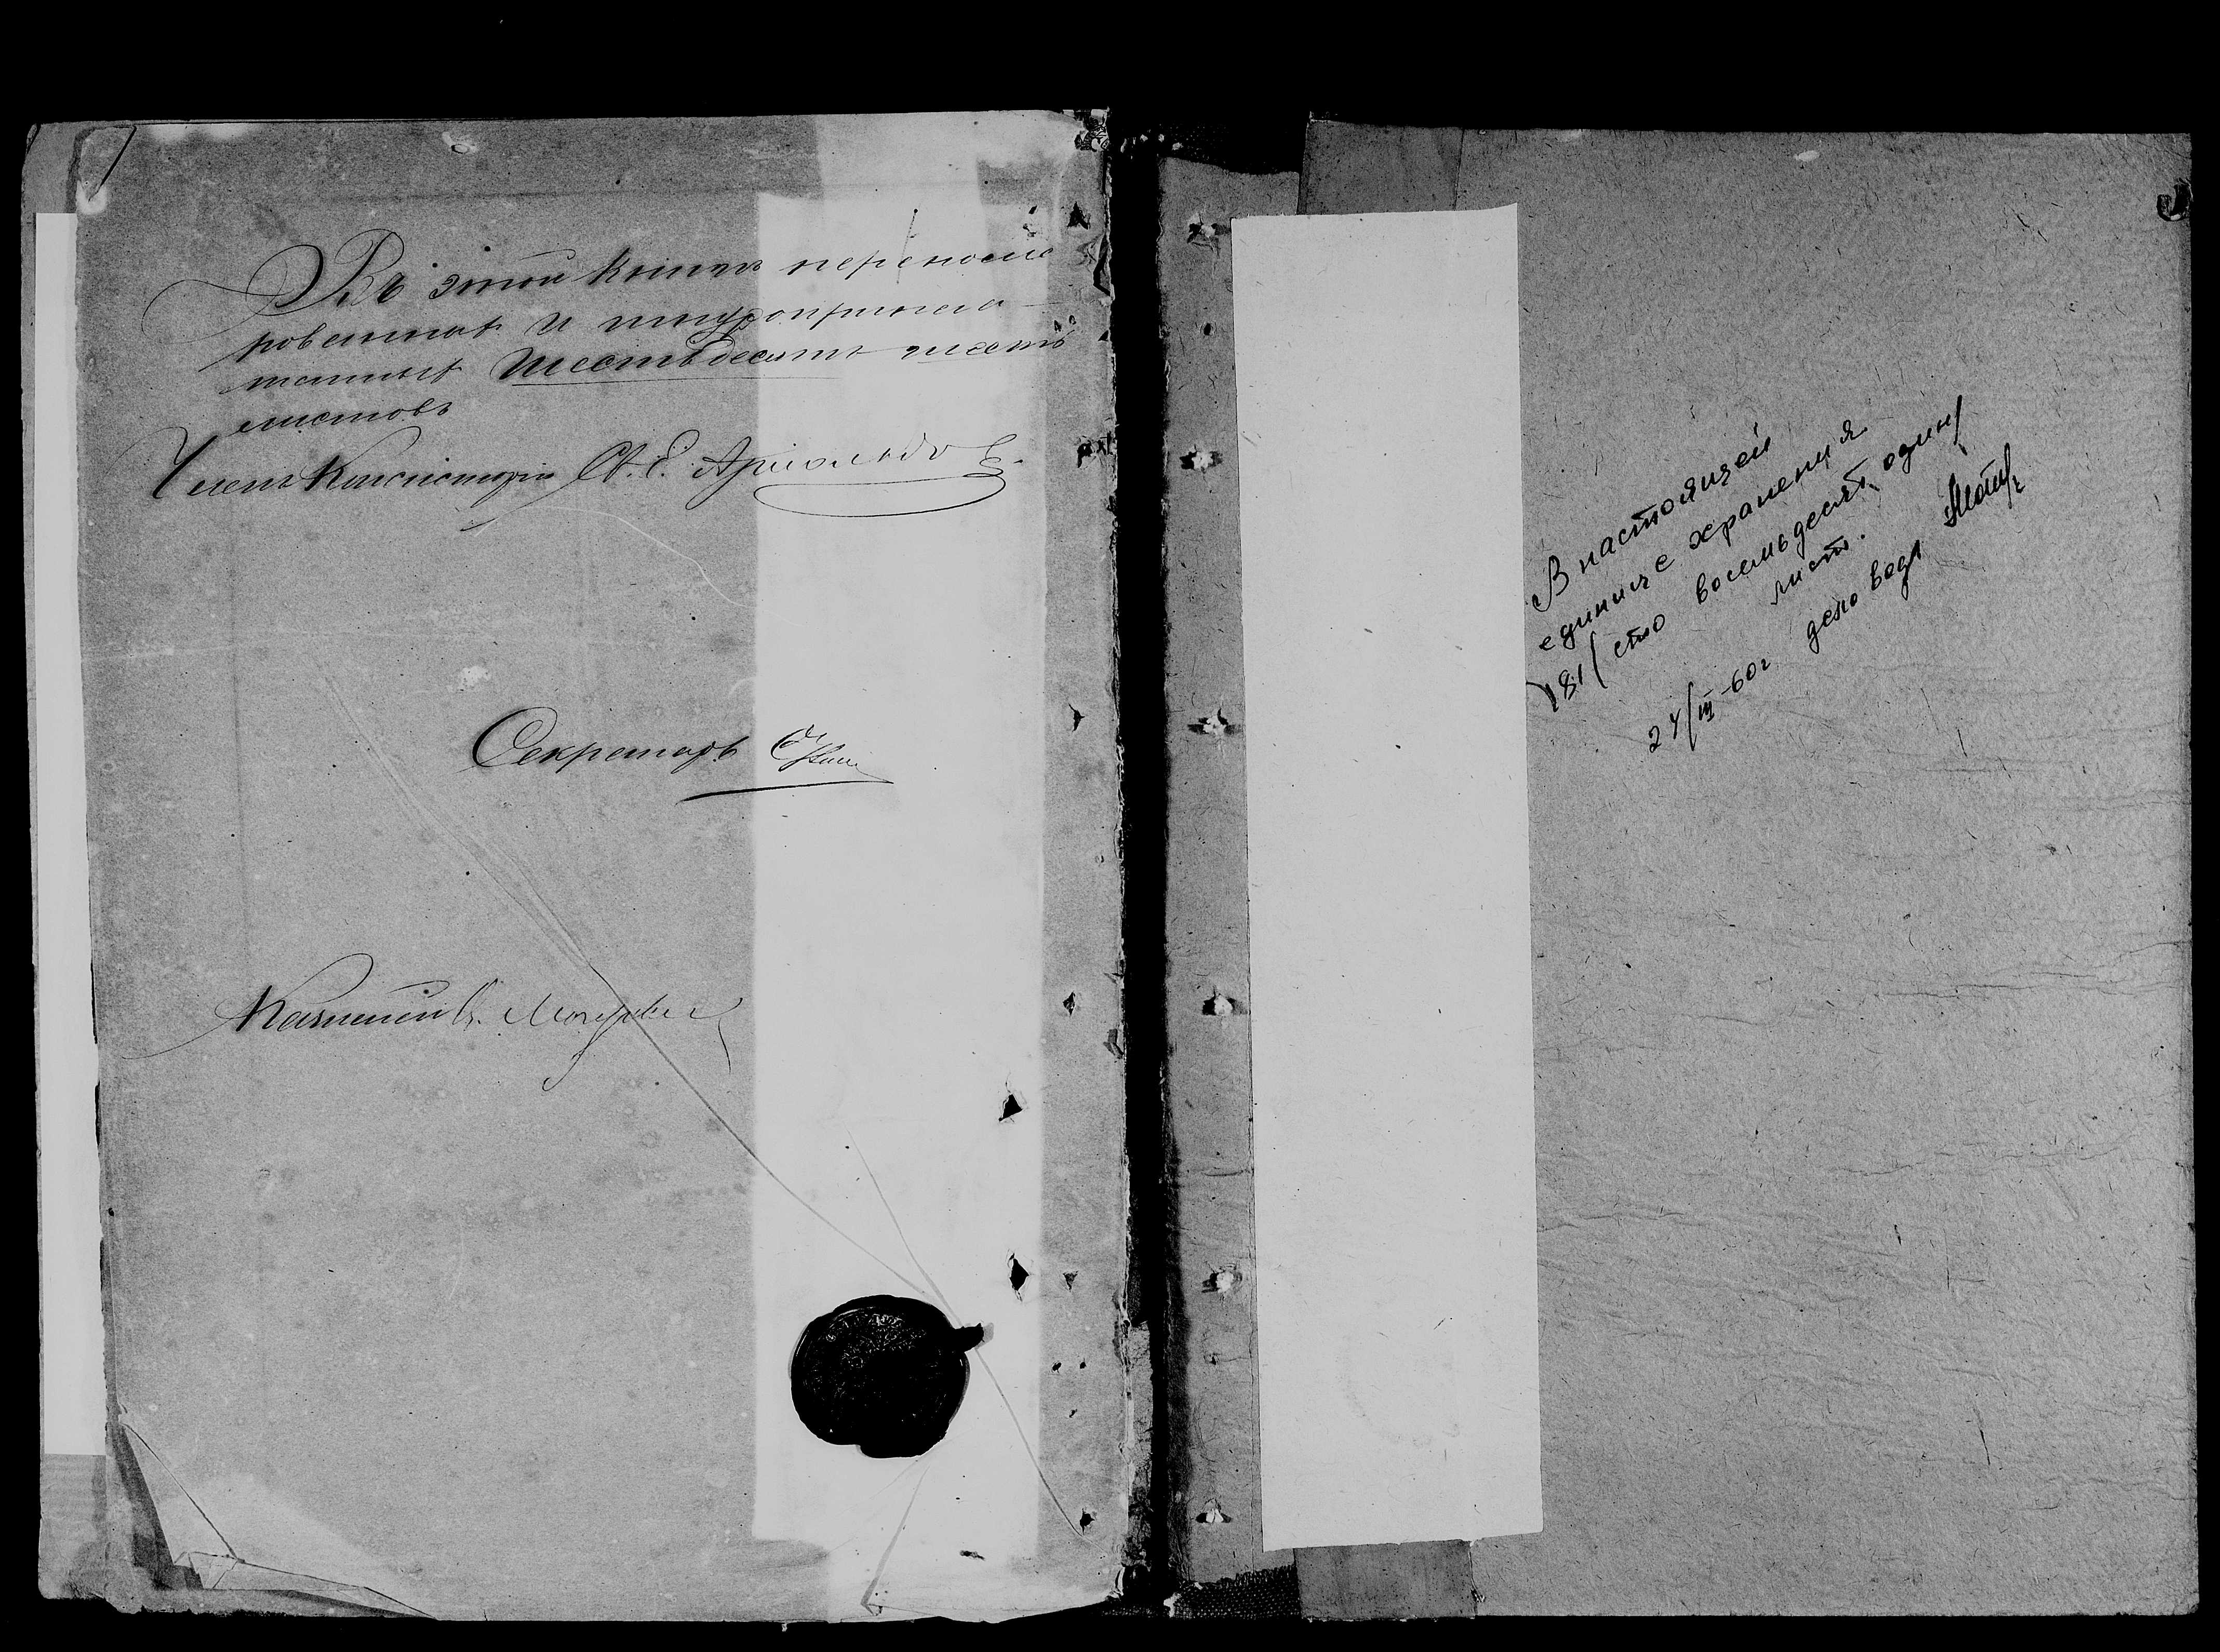 Въ этой книгѣ переноме
рованныхъ и шнуроприпеча
танныхъ шестьдесятъ шесть
листовъ
Членъ Консисторіи Св. Е. Арнольдовъ
Секретарь
Казначей
В настоящей
единице хранения
181/ сто восемьдесят один/
лист.
24/III-60г деловод